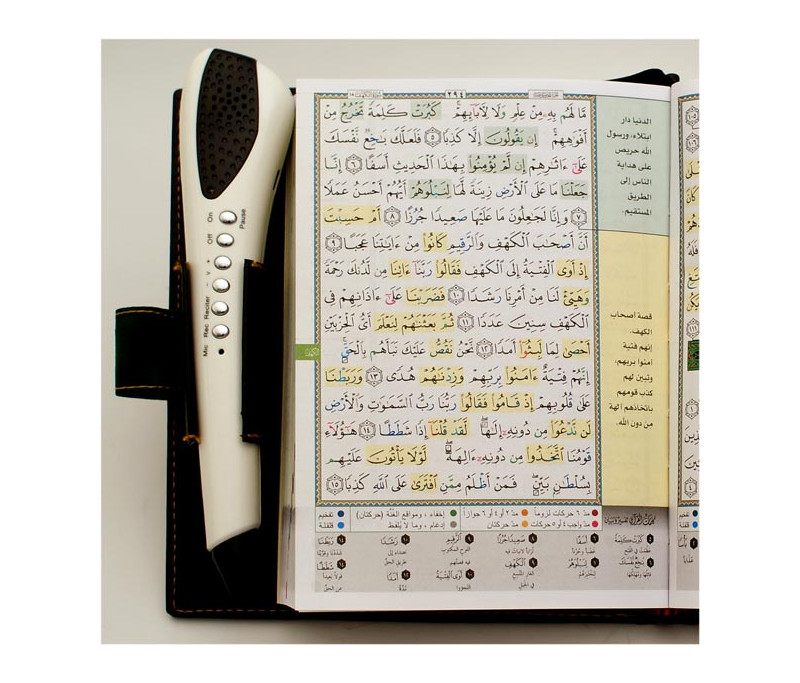 ٢٩٤
مَّا لَهُم بِهِۦ مِنْ عِلْمٍ وَلَا لِأٓبَآئِهِمْ ۚ كَبُرَتْ كَلِمَةً تَخْرُجُ مِنْ
أَفْوَٰهِهِمْ ۚ إِن يَقُولُونَ إِلَّا كَذِبًا ٥ فَلَعَلَّكَ بَٰخِعٌ نَّفْسَكَ
عَلَىٰٓ ءَاثَٰرِهِمْ إِن لَّمْ يُؤْمِنُوا۟ بِهَٰذَا ٱلْحَدِيثِ أَسَفًا ٦ إِنَّا
جَعَلْنَا مَا عَلَى ٱلْأَرْضِ زِينَةً لَّهَا لِنَبْلُوَهُمْ أَيُّهُمْ أَحْسَنُ عَمَلًا
٧ وَإِنَّا لَجَٰعِلُونَ مَا عَلَيْهَا صَعِيدًا جُرُزًا ٨ أَمْ حَسِبْتَ
أَنَّ أَصْحَٰبَ ٱلْكَهْفِ وَٱلرَّقِيمِ كَانُوا۟ مِنْ ءَايَٰتِنَا عَجَبًا ٩
إِذْ أَوَى ٱلْفِتْيَةُ إِلَى ٱلْكَهْفِ فَقَالُوا۟ رَبَّنَآ ءَاتِنَا مِن لَّدُنكَ رَحْمَةً
وَهَيِّئْ لَنَا مِنْ أَمْرِنَا رَشَدًا ١٠ فَضَرَبْنَا عَلَىٰٓ ءَاذَانِهِمْ فِى
ٱلْكَهْفِ سِنِينَ عَدَدًا ١١ ثُمَّ بَعَثْنَٰهُمْ لِنَعْلَمَ أَىُّ ٱلْحِزْبَيْنِ
أَحْصَىٰ لِمَا لَبِثُوٓا۟ أَمَدًا ١٢ نَّحْنُ نَقُصُّ عَلَيْكَ نَبَأَهُم بِٱلْحَقِّ ۚ
إِنَّهُمْ فِتْيَةٌ ءَامَنُوا۟ بِرَبِّهِمْ وَزِدْنَٰهُمْ هُدًى ١٣ وَرَبَطْنَا
عَلَىٰ قُلُوبِهِمْ إِذْ قَامُوا۟ فَقَالُوا۟ رَبُّنَا رَبُّ ٱلسَّمَٰوَٰتِ وَٱلْأَرْضِ
لَن نَّدْعُوَا۟ مِن دُونِهِۦٓ إِلَٰهًا ۖ لَّقَدْ قُلْنَآ إِذًا شَطَطًا ١٤ هَٰٓؤُلَآءِ
قَوْمُنَا ٱتَّخَذُوا۟ مِن دُونِهِۦٓ ءَالِهَةً ۖ لَّوْلَا يَأْتُونَ عَلَيْهِم
بِسُلْطَٰنٍۭ بَيِّنٍ ۖ فَمَنْ أَظْلَمُ مِمَّنِ ٱفْتَرَىٰ عَلَى ٱللَّهِ كَذِبًا ١٥
الدنيا دار
ابتلاء، ورسول
الله حريص
على هداية
الناس إلى
الطريق
المستقيم.
قصة أصحاب
الكهف.
إنهم فتية
آمنوا بربهم،
وتبين لهم
كذب قومهم
باتخاذهم آلهة
من دون الله.
مدّ ٦ حركات لزوماً مدّ ٢ أو ٤ أو ٦ جوازاً إخفاء، ومواقع الغنّة (حركتان) تفخيم
مدّ واجب ٤ أو ٥ حركات مدّ حركتان إدغام، وما لا يُلفظ قلقلة
On
Off
Pause
+
V
-
Reciter
Rec
Mic